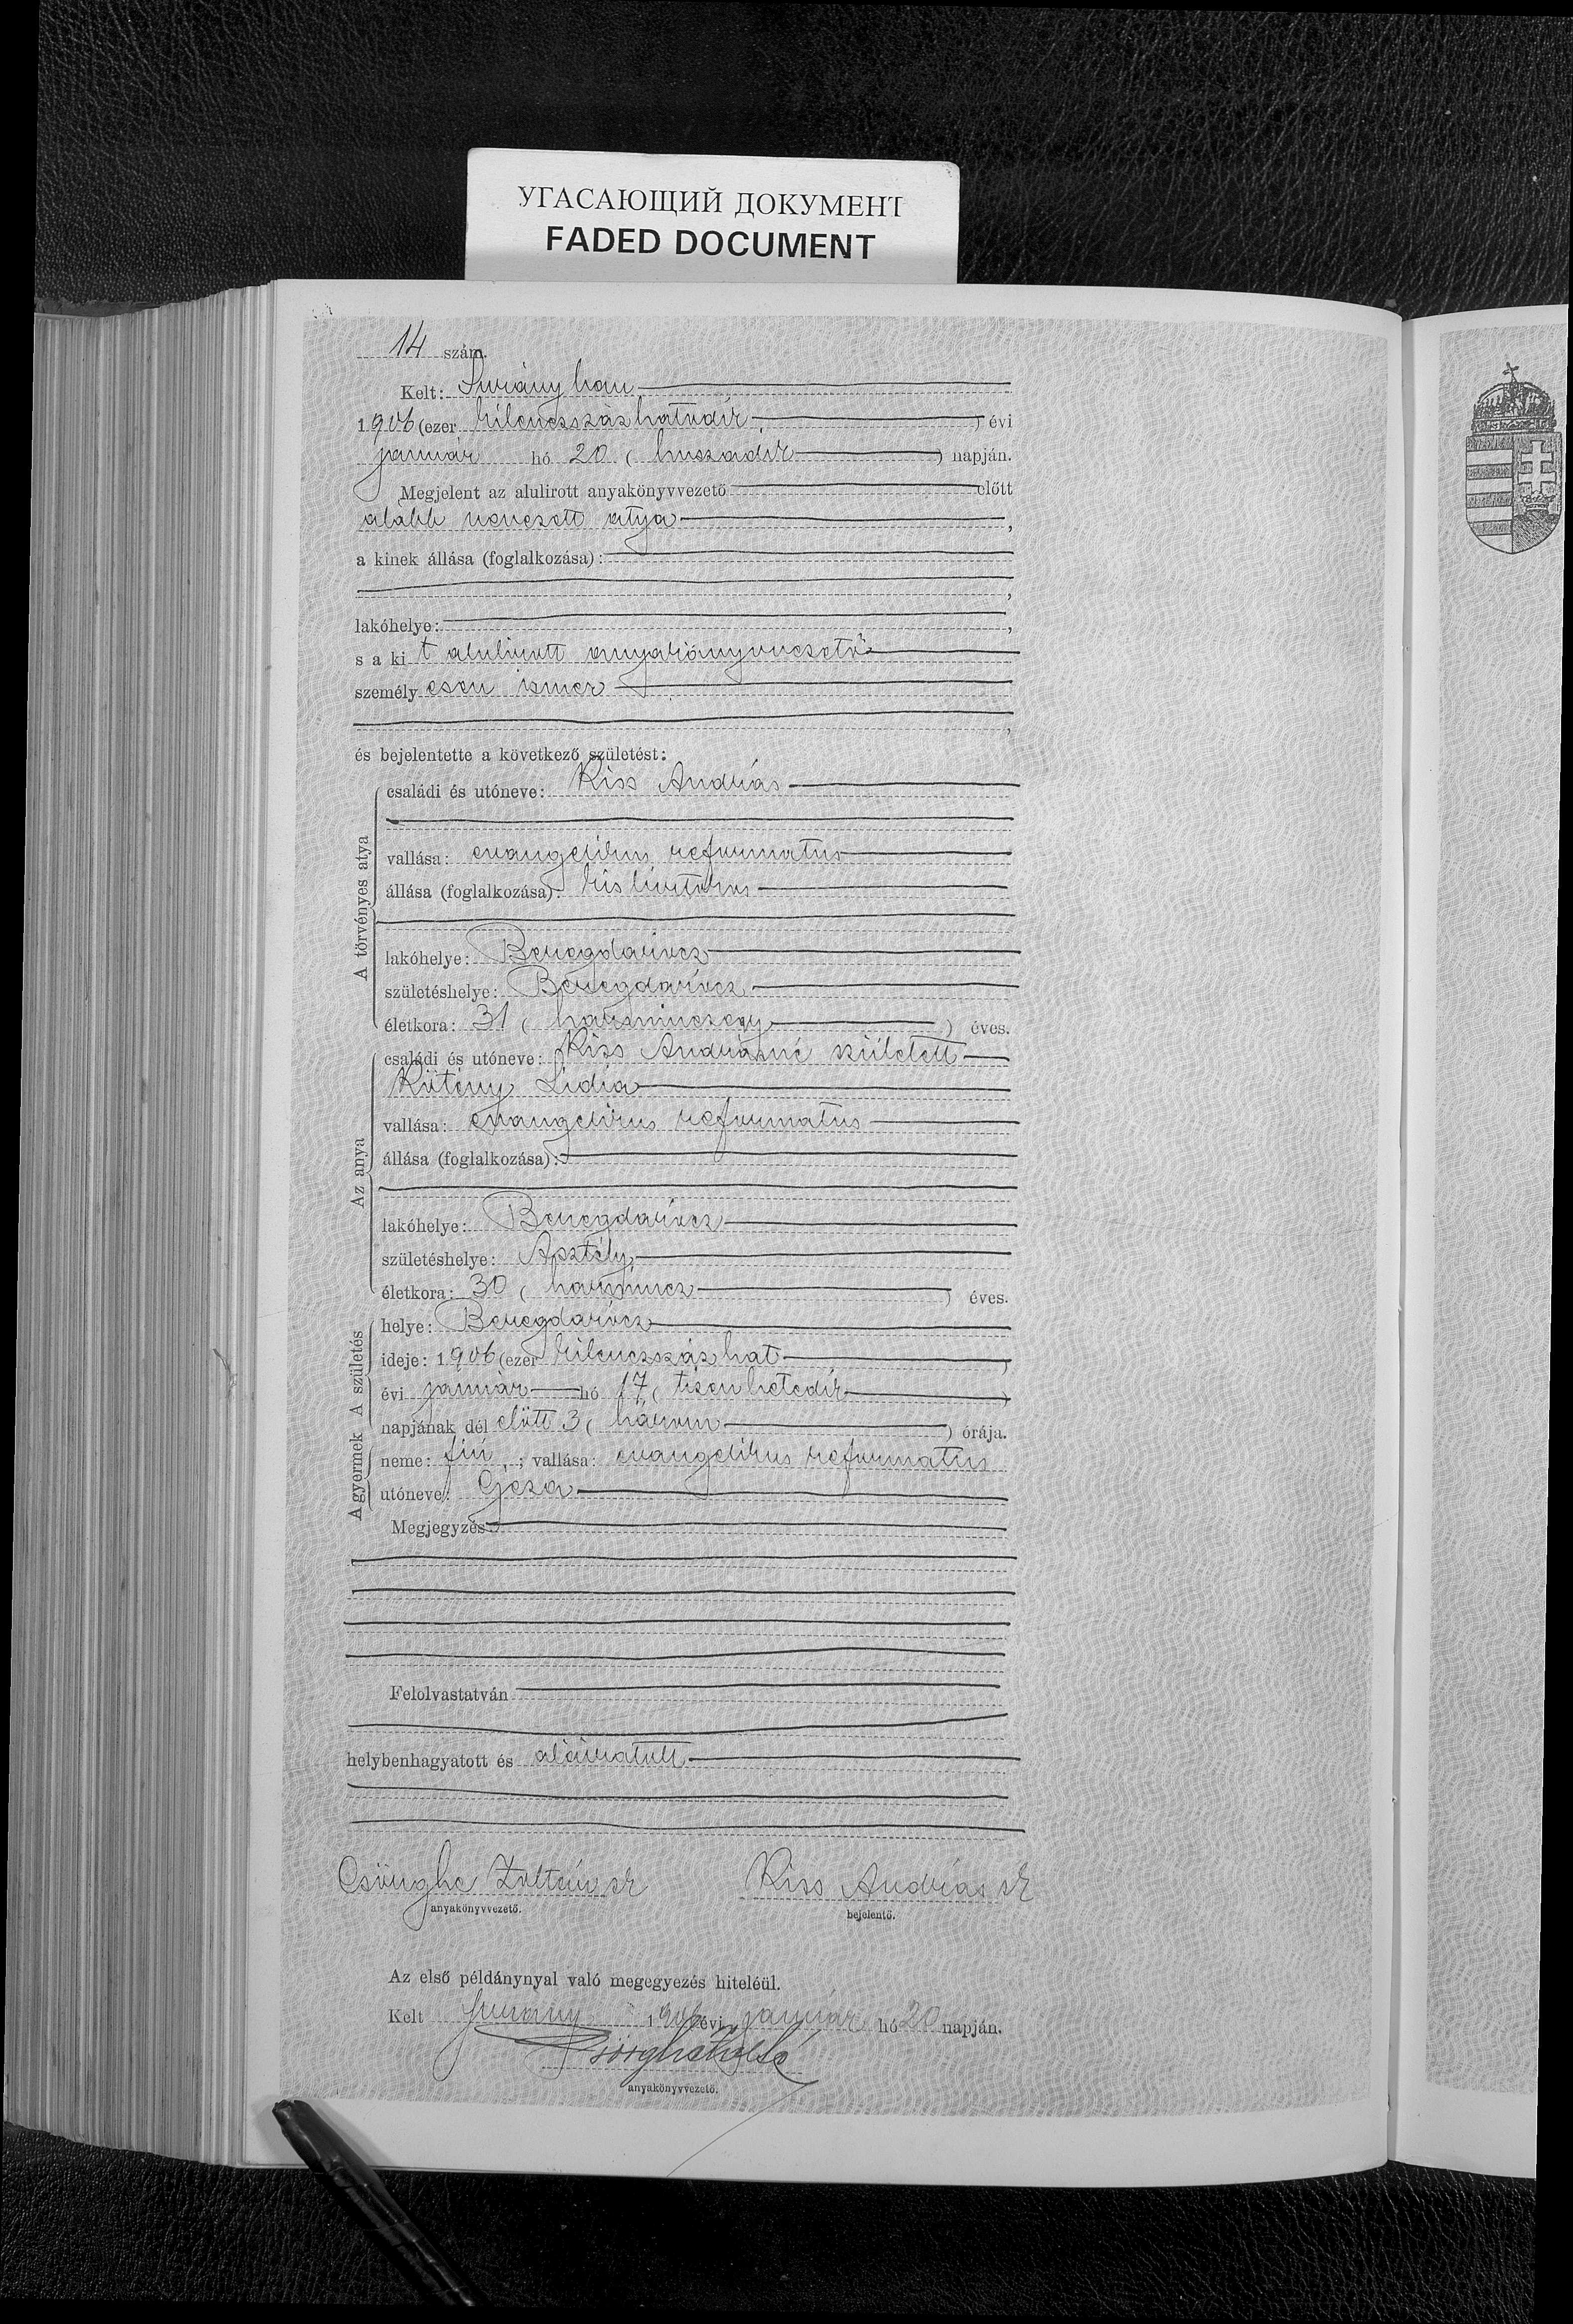 УГАСАЮЩИЙ ДОКУМЕНТ
FADED DOCUMENT
14 szám.
Kelt: Surányban
1906 (ezer kilenczszázhatodik) évi
január hó 20 (huszadik) napján.
Megjelent az alulirott anyakönyvvezető előtt
alább nevezett atya,
a kinek állása (foglalkozása):
lakóhelye:
s a kit alulirott anyakönyvvezető
személyesen ismer
és bejelentette a következő születést:
A törvényes atya
családi és utóneve: Kiss András
vallása: evangelikus reformatus
állása (foglalkozása): kisbirtokos
lakóhelye: Beregdarócz
születéshelye: Beregdarócz
életkora: 31 (harminczegy) éves.
Az anya
családi és utóneve: Kiss Andrásné született
Kötény Lidia
vallása: evangelikus reformatus
állása (foglalkozása):
lakóhelye: Beregdarócz
születéshelye: Asztély
életkora: 30 (harmincz) éves.
A születés
helye: Beregdarócz
ideje: 1906 (ezer kilenczszáz hat)
évi január hó 17 (tizenhetedik)
napjának dél előtt 3 (három) órája.
A gyermek
neme: fiú; vallása: evangelikus reformatus
utóneve: Geza
Megjegyzés:
Felolvastatván
helybenhagyatott és aláiratott
Zoltán sk Kiss András sk
anyakönyvvezető. bejelentő.
Az első példánynyal való megegyezés hiteléül.
Kelt Surány 1906 évi január hó 20 napján.
anyakönyvvezető.